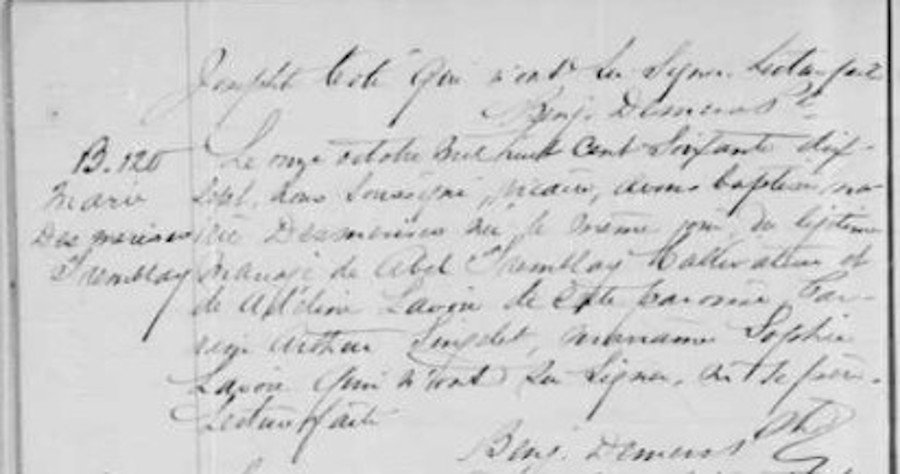 Joseph Coté qui n'ont su signer. Lecture faite
Benj. Demers Ptre
B. 120
Marie
Desmerises
Tremblay
Le onze octobre mil huit cent soixante dix-
sept, nous soussigné, vicaire, avons baptisé, Ma-
rie Desmerises née le même jour, du légitime
mariage de Abel Tremblay Cultivateur et
de Adéline Lavoie de cette paroisse, Par-
rain Arthur Singelet, marraine Sophie
Lavoie qui n'ont su signer, ni le père.
Lecture faite
Benj. Demers Ptre